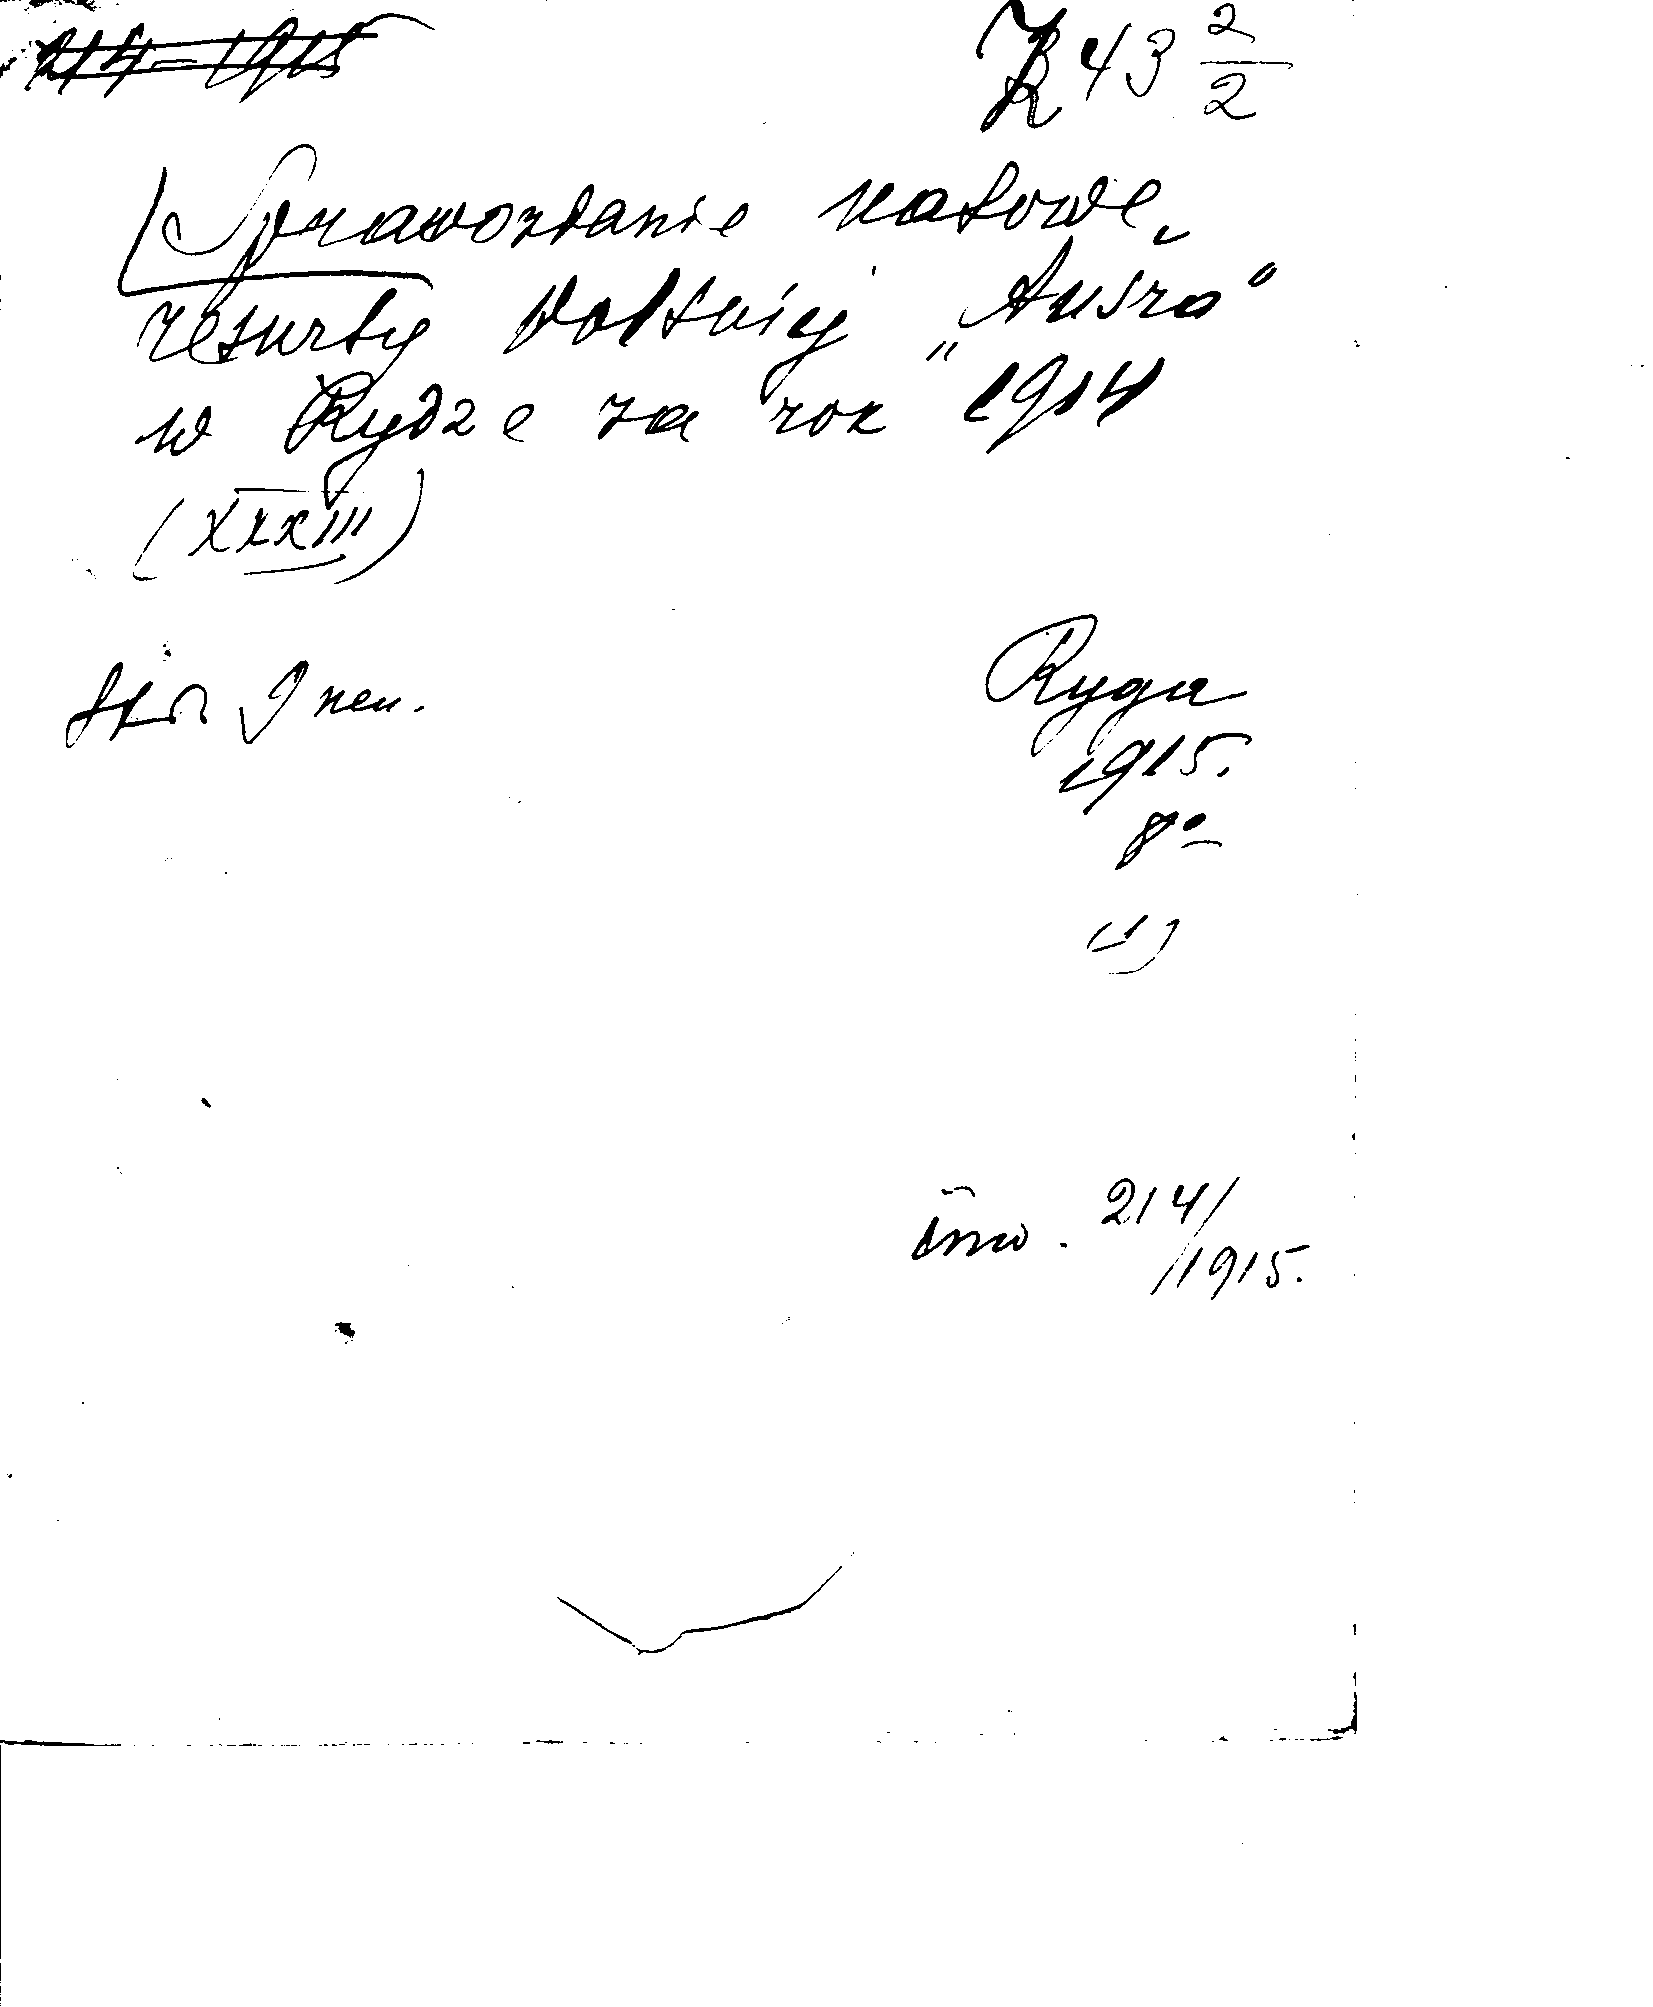 214-1915
43 2/2
Sprawozdanie kasowe
resursy Polskiej „Ausra“
w Rydze za rok 1914
(XXXIII)
Str 9 nen.
Ryga
1915.
8°
(1)
inw. 214/
/1915.